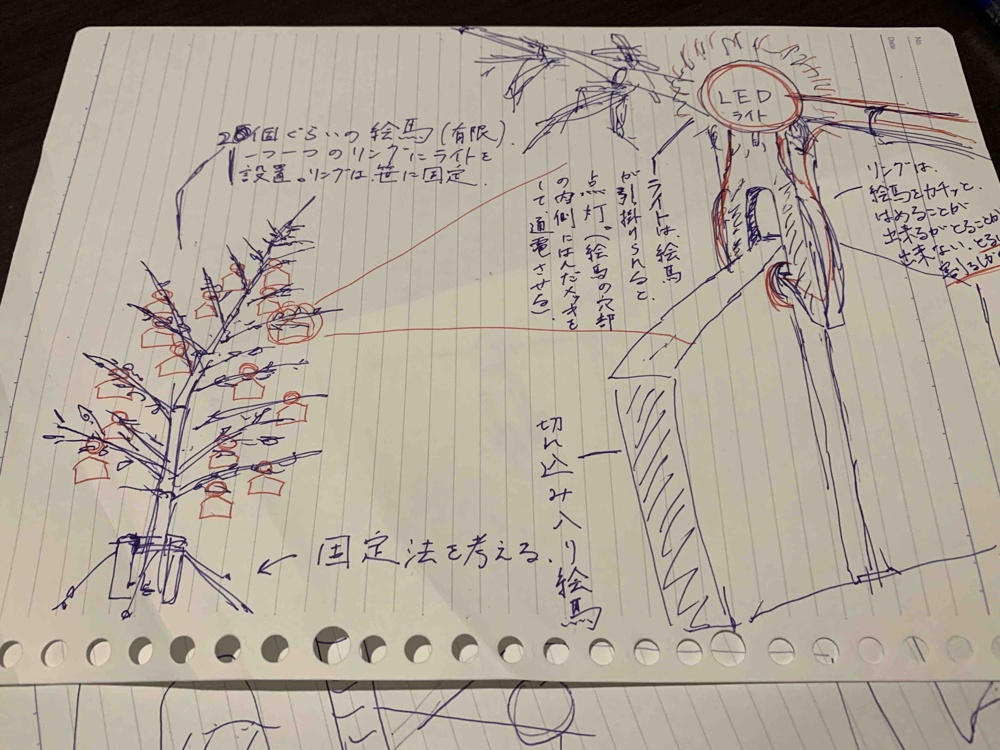 20個ぐらいの絵馬(有限).
一つ一つのリングにライトを
設置。リングは笹に固定.
LED
ライト
ライトは、絵馬
が引掛けられると
点灯。(絵馬の穴部
の内側にはんだメッキを
して通電させる)
リングは、
絵馬をカチッと
はめることが
出来るがとることが
出来ない。
切れ込み入り絵馬
固定法を考える.
Date
No.